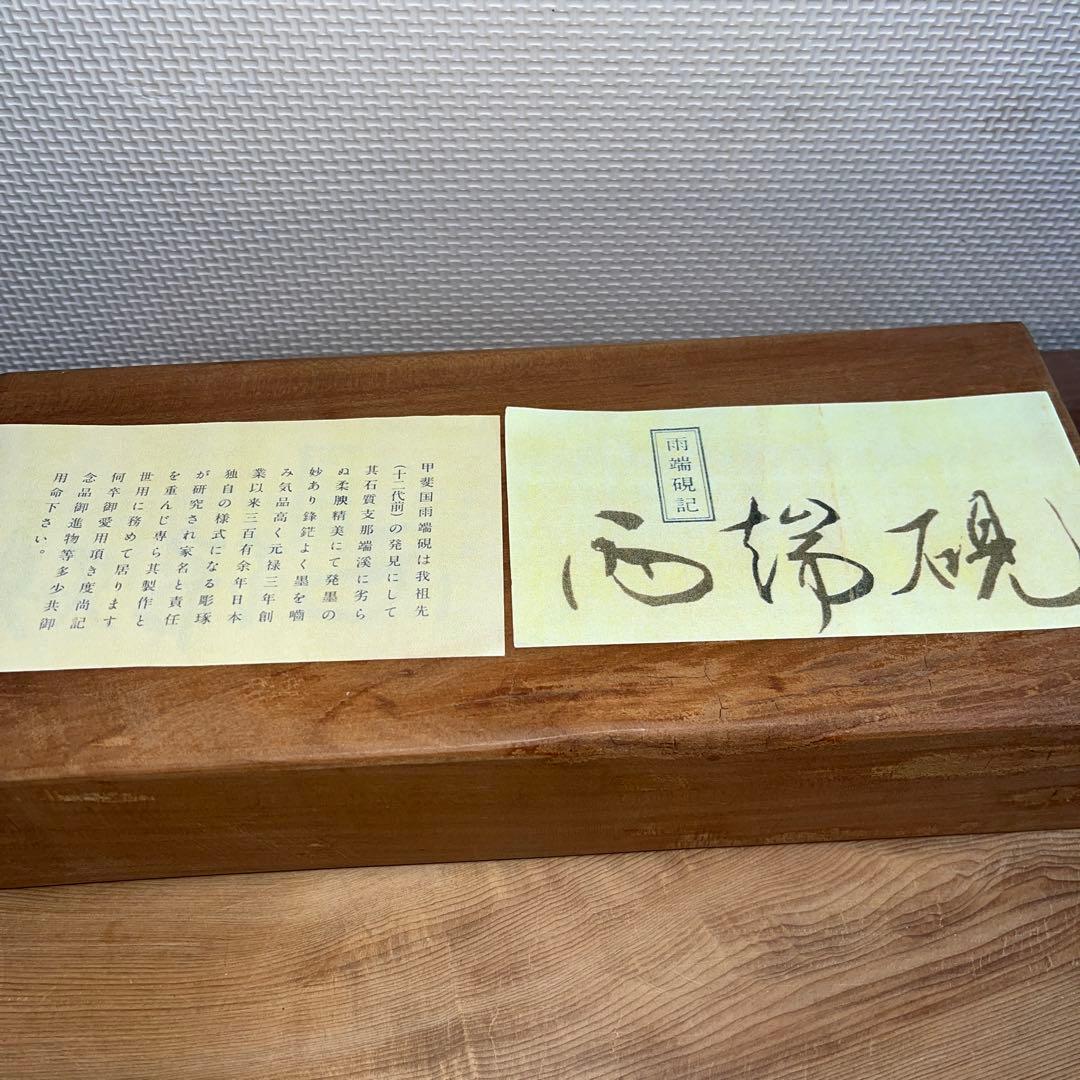 雨端硯記
雨端硯
甲斐国雨端硯は我祖先
(十二代前)の発見にして
其石質支那端溪に劣ら
ぬ柔腴精美にて発墨の
妙あり鋒鋩よく墨を嚙
み気品高く元禄三年創
業以来三百有余年日本
独自の様式になる彫琢
が研究され家名と責任
を重んじ専ら其製作と
世用に務めて居ります
何卒御愛用頂き度尚記
念品御進物等多少共御
用命下さい。